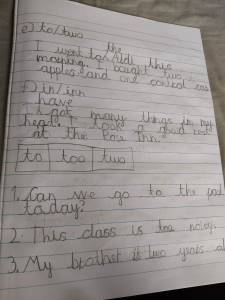 e) to/two
the
I went to Aldi this
morning. I bought two
apples and one
f) in/inn
have
I got many things in my
head. I took a good rest
at the inn.
to too two
1. Can we go to the
today?
2. This class is too noisy.
3. My brother is two years